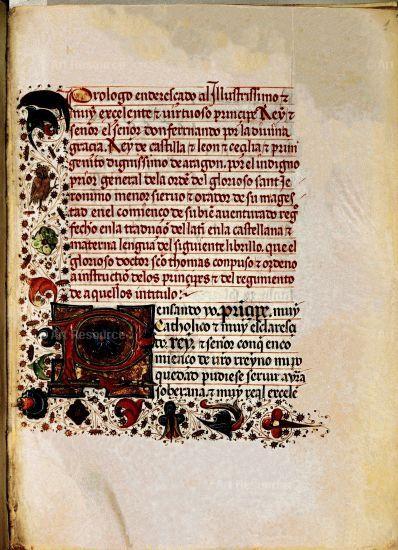 Prologo enderesçado al Illustrissimo ⁊
muy excelente ⁊ virtuoso principe Rey ⁊
señor el señor don ferrnando por la diuina
gracia. Rey de castilla ⁊ leon ⁊ ceçilia ⁊ prim
genito dignissimo de aragon. por el indigno
prior general dela ordẽ del glorioso sant Je
ronimo menor sieruo ⁊ orador de su mages
tad en el comienço de su biẽ auenturado reg
fecho en la traduçiõ del latĩ en la castellana ⁊
materna lengua del siguiente librillo. que el
glorioso doctor sctõ thomas conpuso ⁊ ordeno
a instructiõ delos principes ⁊ del regimiento
de aquellos intitulo:
Pensando yo principe. muy
Catholico ⁊ muy esclaresçi
do. rey. ⁊ señor con que enco
mienço de vr̃o reyno mi po
quedad pudiese seruir a vr̃a
soberana. ⁊ muy real excelẽ
Art Resource